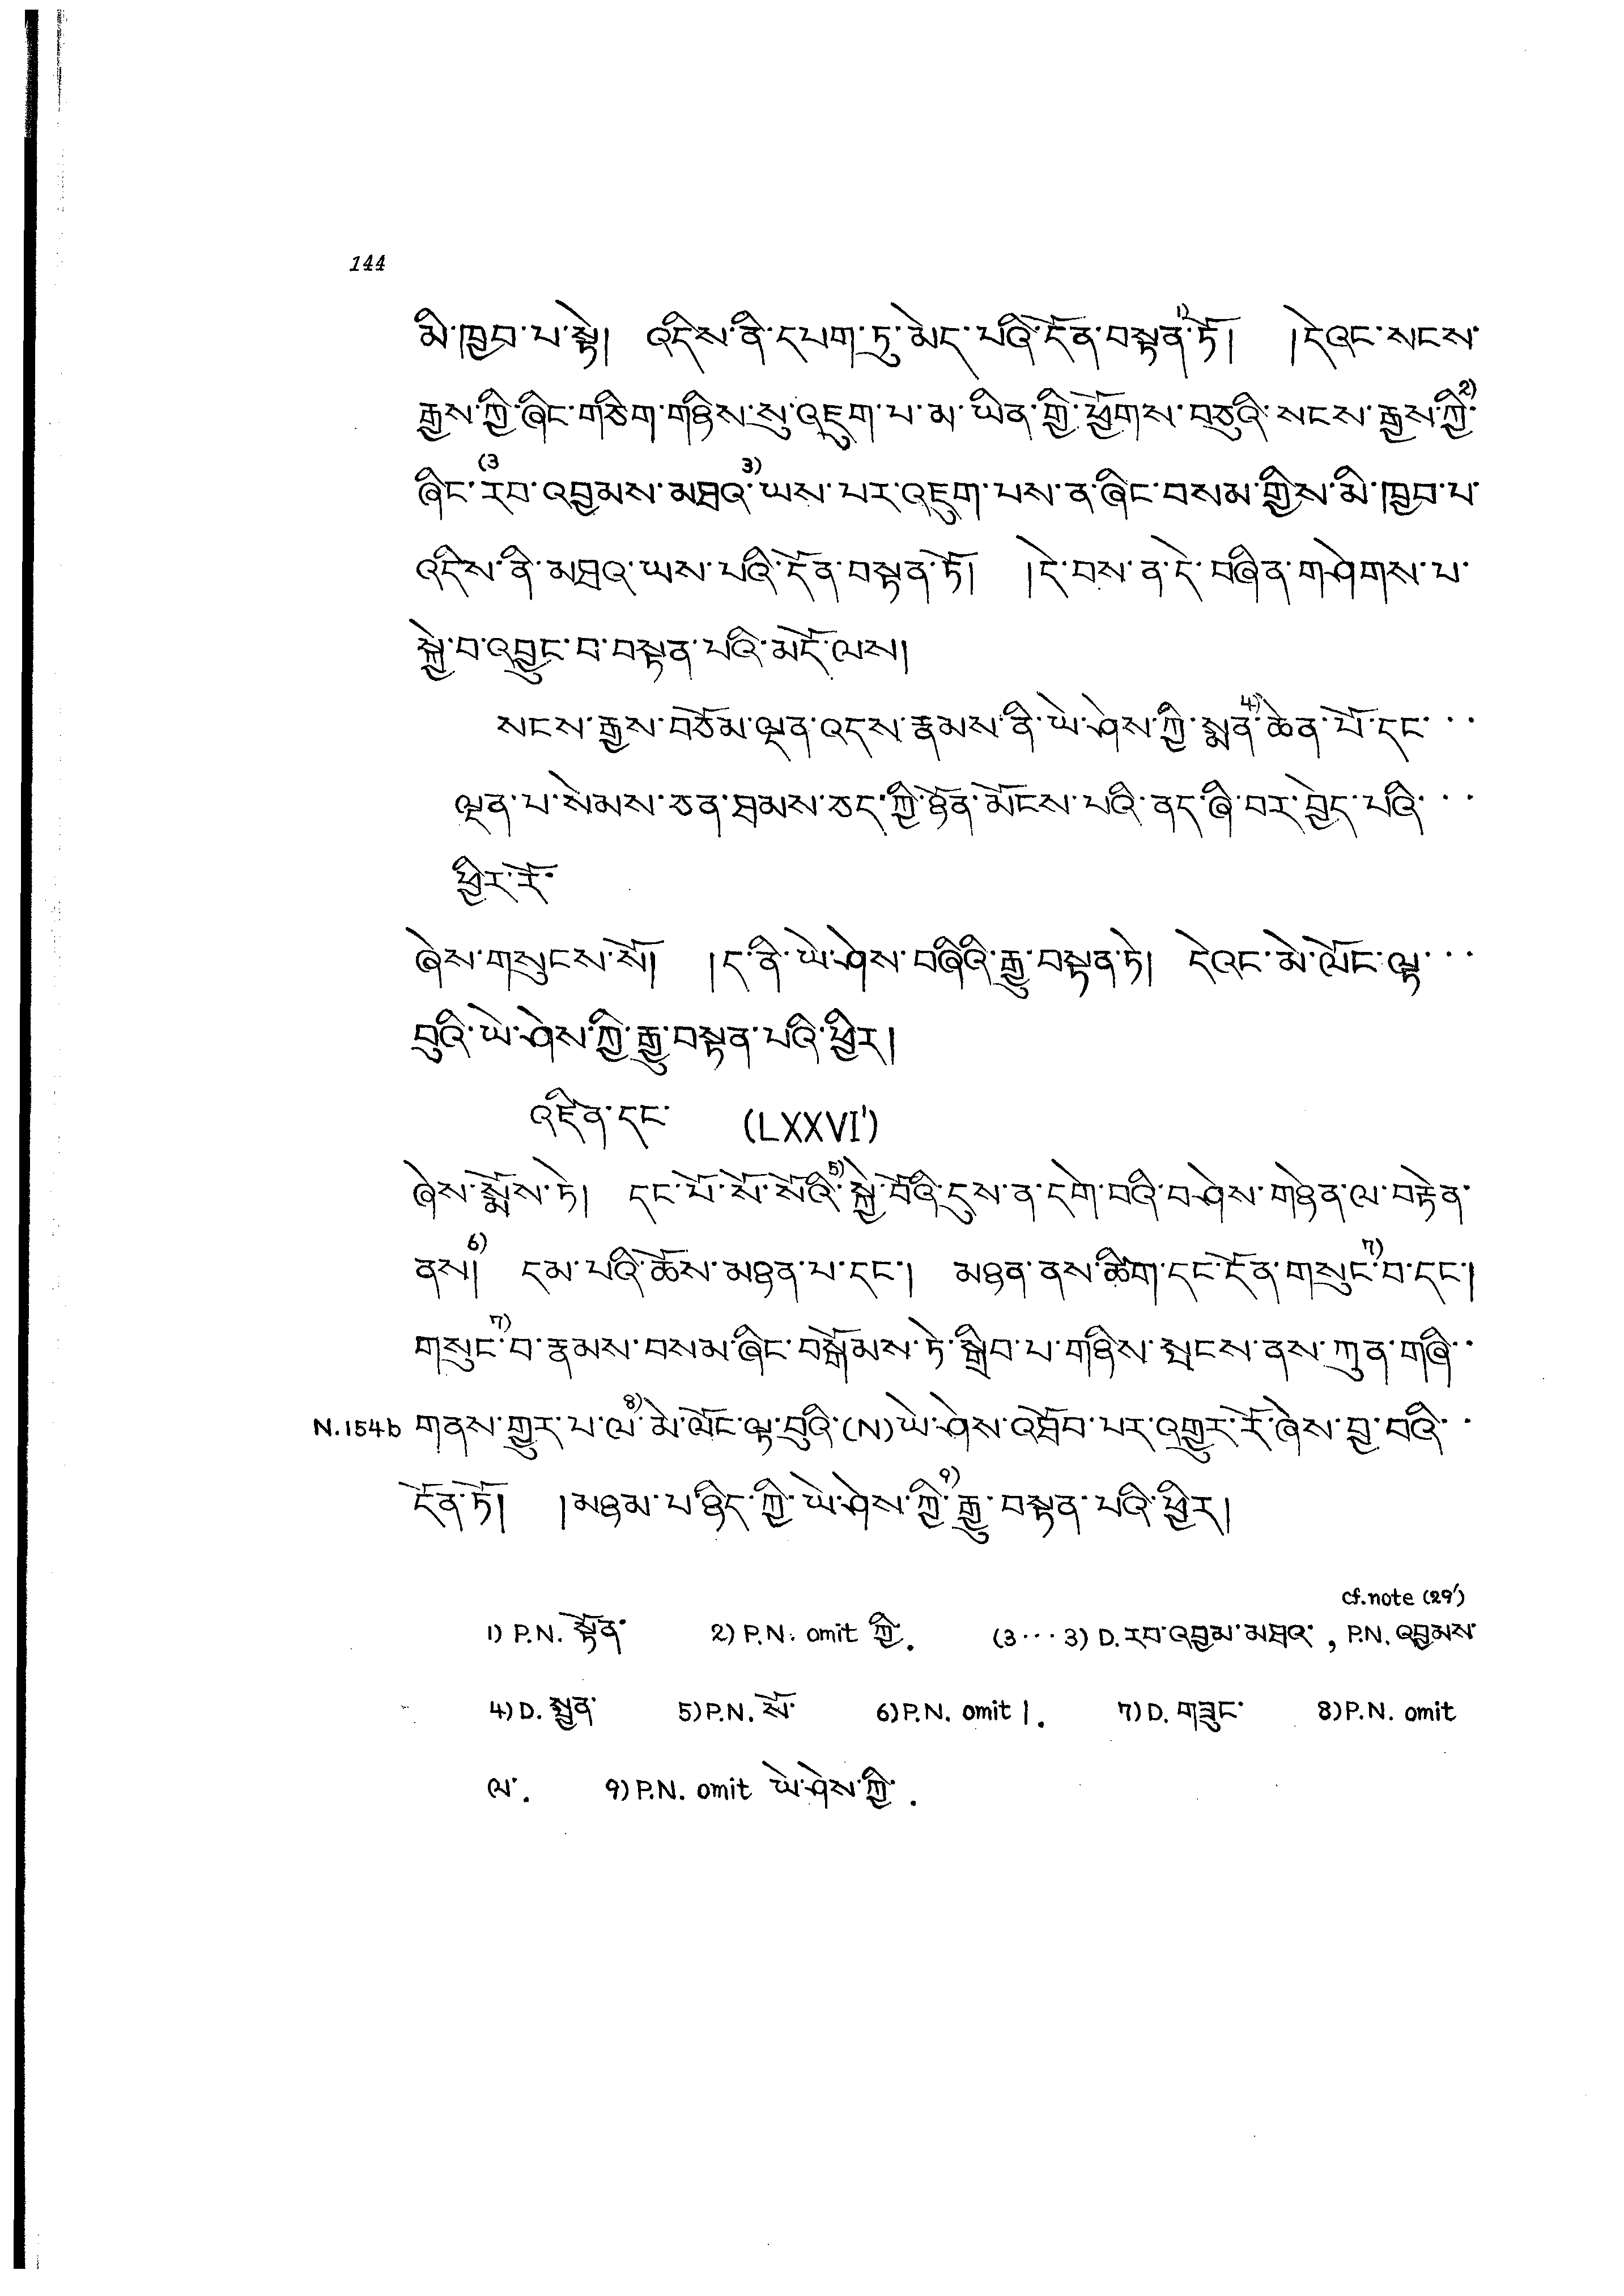 144
མི་ཁྱབ་པ་སྟེ། འདིས་ནི་དཔག་ཏུ་མེད་པའི་དོན་བསྟན་1)ཏོ། །དེའང་སངས་
རྒྱས་ཀྱི་ཞིང་གཅིག་གཉིས་སུ་འཇུག་པ་མ་ཡིན་གྱི་ཕྱོགས་བཅུའི་སངས་རྒྱས་ཀྱི་2)
ཞིང་(3རབ་འབྱམས་མཐའ་3)ཡས་པར་འཇུག་པས་ན་ཞིང་བསམ་གྱིས་མི་ཁྱབ་པ་
འདིས་ནི་མཐའ་ཡས་པའི་དོན་བསྟན་ཏོ། །དེ་བས་ན་དེ་བཞིན་གཤེགས་པ་
སྐྱེ་བ་འབྱུང་བ་བསྟན་པའི་མདོ་ལས།
སངས་རྒྱས་བཅོམ་ལྡན་འདས་རྣམས་ནི་ཡེ་ཤེས་ཀྱི་སྨན་4)ཆེན་པོ་དང་···
ལྡན་པ་སེམས་ཅན་ཐམས་ཅད་ཀྱི་ཉོན་མོངས་པའི་ནད་ཞི་བར་བྱེད་པའི་···
ཕྱིར་རོ་
ཞེས་གསུངས་སོ། །ད་ནི་ཡེ་ཤེས་བཞིའི་རྒྱུ་བསྟན་ཏེ། དེའང་མེ་ལོང་ལྟ་···
བུའི་ཡེ་ཤེས་ཀྱི་རྒྱུ་བསྟན་པའི་ཕྱིར།
འཛིན་དང་ (LXXVI')
ཞེས་སྨོས་ཏེ། དང་པོ་སོ་སོའི་5)སྐྱེ་བོའི་དུས་ན་དགེ་བའི་བཤེས་གཉེན་ལ་བརྟེན་
ནས།6) དམ་པའི་ཆོས་མཉན་པ་དང་། མཉན་ནས་ཚིག་དང་དོན་གསུང་7)བ་དང་།
གསུང་7)བ་རྣམས་བསམ་ཞིང་བསྒོམས་ཏེ་སྒྲིབ་པ་གཉིས་སྤངས་ནས་ཀུན་གཞི་··
N.154b གནས་གྱུར་པ་ལ་8)མེ་ལོང་ལྟ་བུའི་(N)ཡེ་ཤེས་འཐོབ་པར་འགྱུར་རོ་ཞེས་བྱ་བའི་··
དོན་ཏོ། །མཉམ་པ་ཉིད་ཀྱི་ཡེ་ཤེས་ཀྱི་9)རྒྱུ་བསྟན་པའི་ཕྱིར།
cf.note (29')
1) P.N. སྟོན་ 2) P.N. omit ཀྱི་. (3···3) D. རབ་འབྱམ་མཐའ་, P.N. འབྱམས་
4) D. སྨྱན་ 5) P.N. སོ་ 6) P.N. omit །. 7) D. གཟུང་ 8) P.N. omit
ལ་. 9) P.N. omit ཡེ་ཤེས་ཀྱི་.